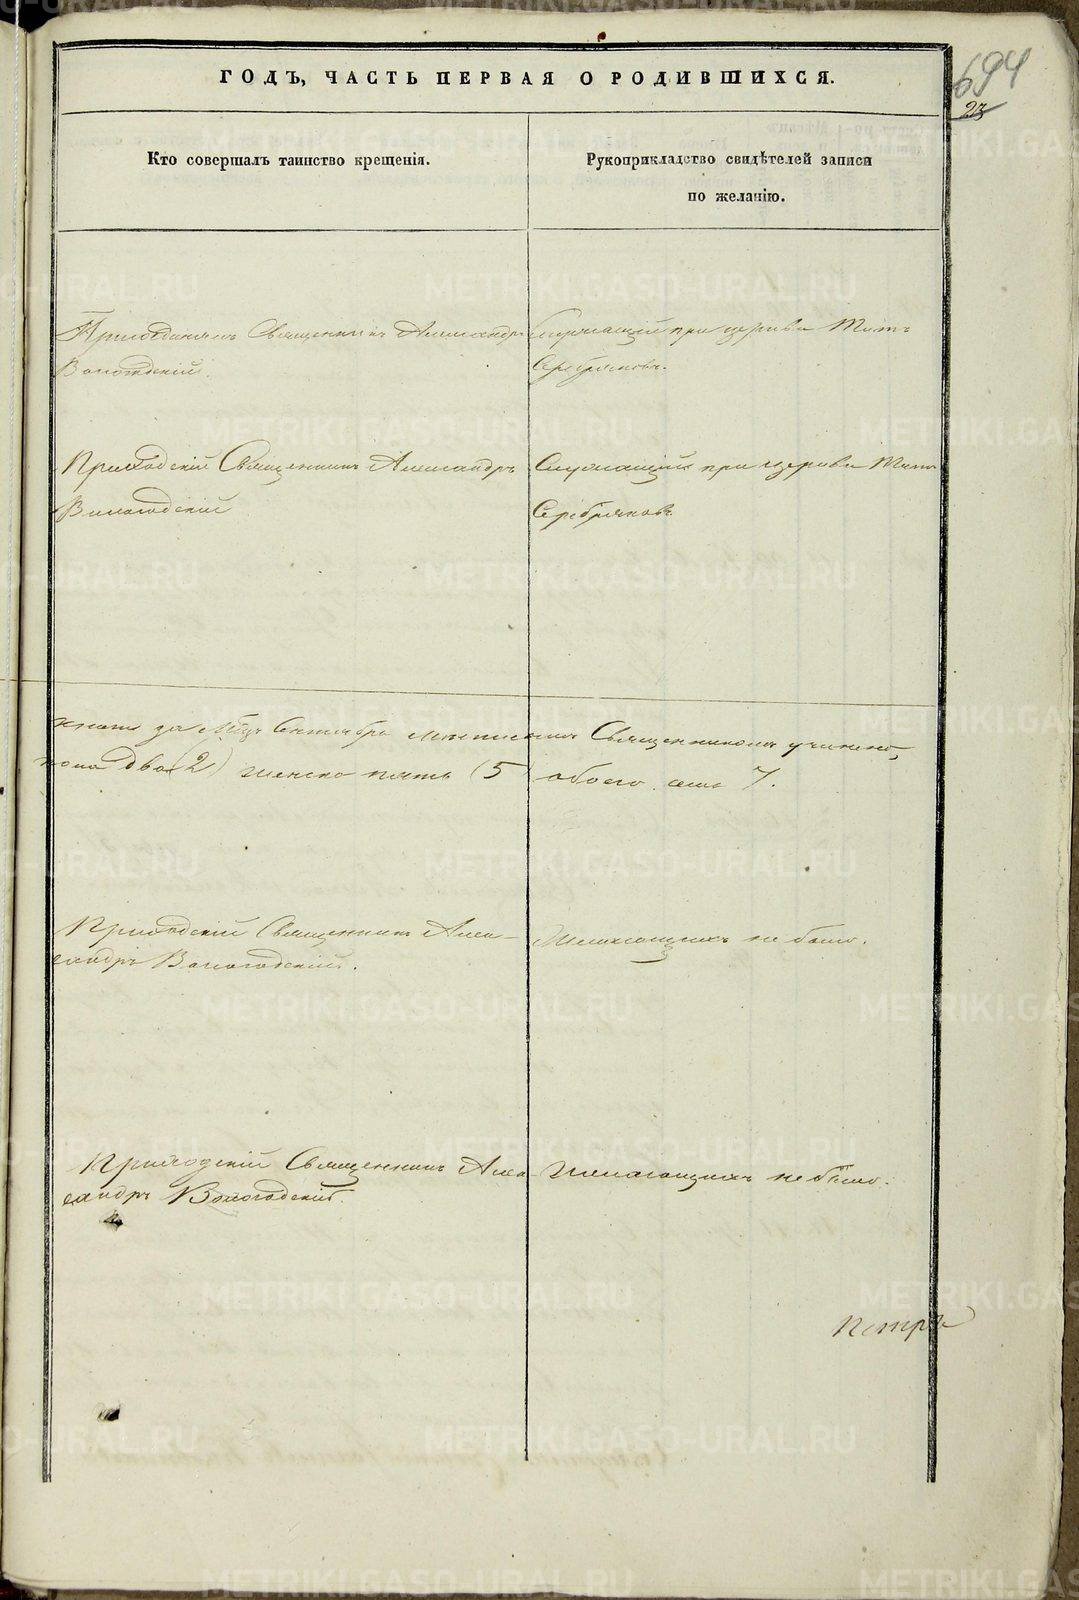 694
23
ГОДЪ, ЧАСТЬ ПЕРВАЯ О РОДИВШИХСЯ.
Кто совершалъ таинство крещенія.
Рукоприкладство свидѣтелей записи
по желанію.
Священникъ Александръ
Вологодскій.
Служащій при церкви Титъ
Серебряковъ.
Приходскій Священникъ Александръ
Вологодскій
Служащій при церкви Титъ
Серебряковъ
за Мцъ Сентябрь Священникомъ учинено,
два (2) женска пять (5) обоего 7.
Приходскій Священникъ Алек-
сандръ Вологодскій.
Желающихъ не было.
Приходскій Священникъ Алек
сандръ Вологодскій.
Желающихъ не было.
Петръ
METRIKI.GASO-URAL.RU